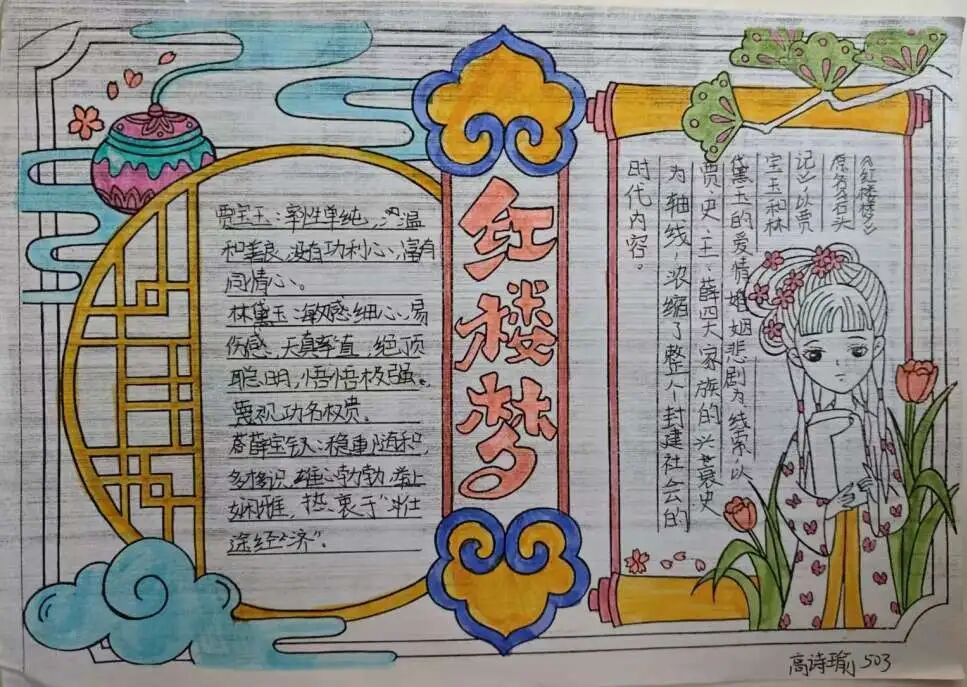 红楼梦
贾宝玉：率性单纯，温
和善良，没有功利心，富有
同情心。
林黛玉：敏感细心、易
伤感、天真率直，绝顶
聪明，悟悟极强。
蔑视功名权贵。
薛宝钗：稳重随和，
多才多识，雄心勃勃，举止
娴雅，热衷于“仕
途经济”。
《红楼梦》
原名《石头
记》，以贾
宝玉和林
黛玉的爱情婚姻悲剧为线索，以
贾、史、王、薛四大家族的兴衰史
为轴线，浓缩了整个封建社会的
时代内容。
高诗瑜 503